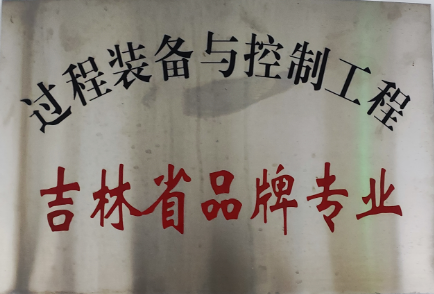 过程装备与控制工程
吉林省品牌专业